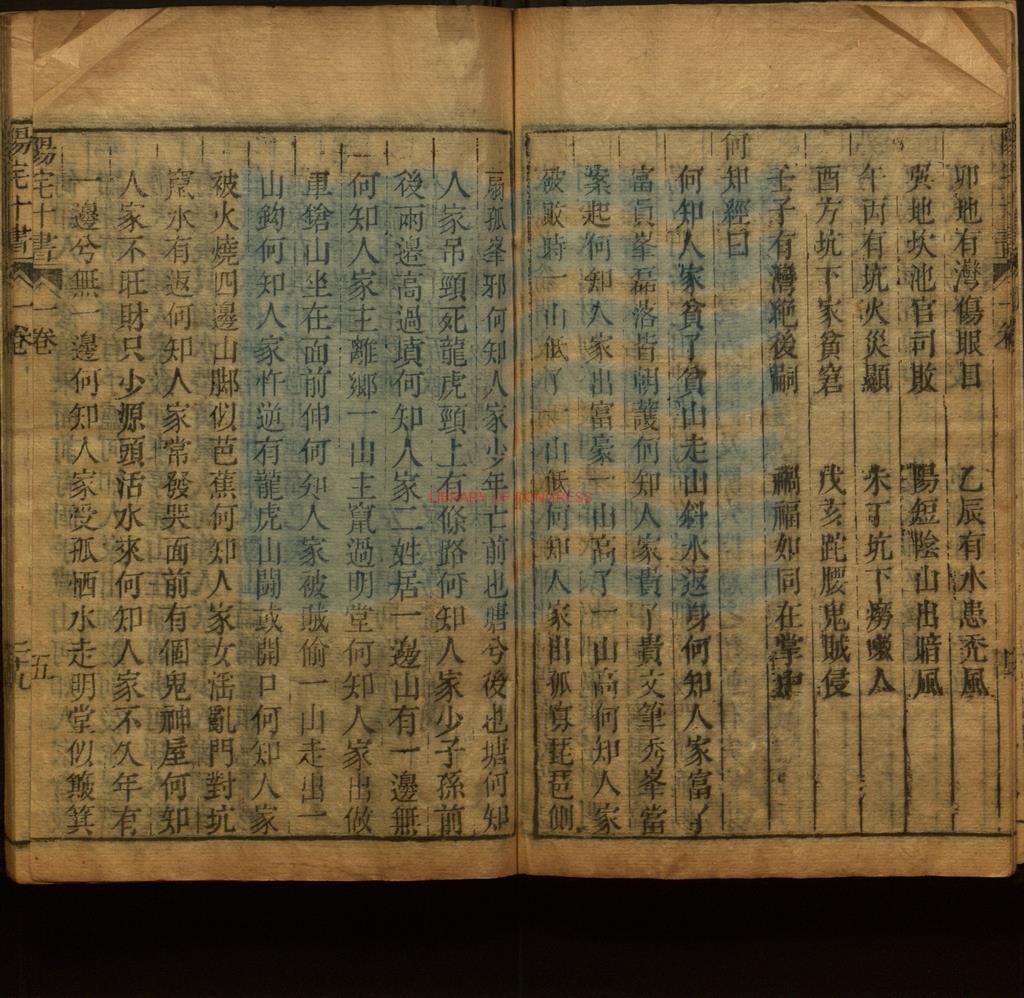 卯地有灣傷眼目 乙辰有水患禿風
巽地坎池官司敗 陽短陰山出暗風
午丙有坑火災顯 未丁坑下癆嗽人
酉方坑下家貧窘 戌亥跎腰鬼賊侵
壬子有灣絶後嗣 禍福如同在掌中
何知經曰
何知人家貧了貧山走山斜水返身何知人家富了
富員峯磊落皆朝護何知人家貴了貴文筆秀峯當
案起何知人家出富豪一山高了一山高何知人家
被敗時一山低了一山低何知人家出孤寡琵琶側
扇孤峯邪何知人家少年亡前也塘兮後也塘何知
人家吊頸死龍虎頸上有條路何知人家少子孫前
後兩邉高過墳何知人家二姓居一邉山有一邉無
何知人家主離鄉一山主竄過明堂何知人家出做
軍鎗山坐在面前伸何知人家被賊偷一山走出一
山鈎何知人家忤逆有龍虎山鬪或開口何知人家
被火燒四邉山脚似芭蕉何知人家女滛亂門對坑
竄水有返何知人家常發哭面前有個鬼神屋何知
人家不旺財只少源頭活水來何知人家不久年有
一邉兮無一邉何知人家受孤栖水走明堂似簸箕
陽宅十書 一卷 五
陽宅十書 一卷 二十九
LIBRARY OF CONGRESS